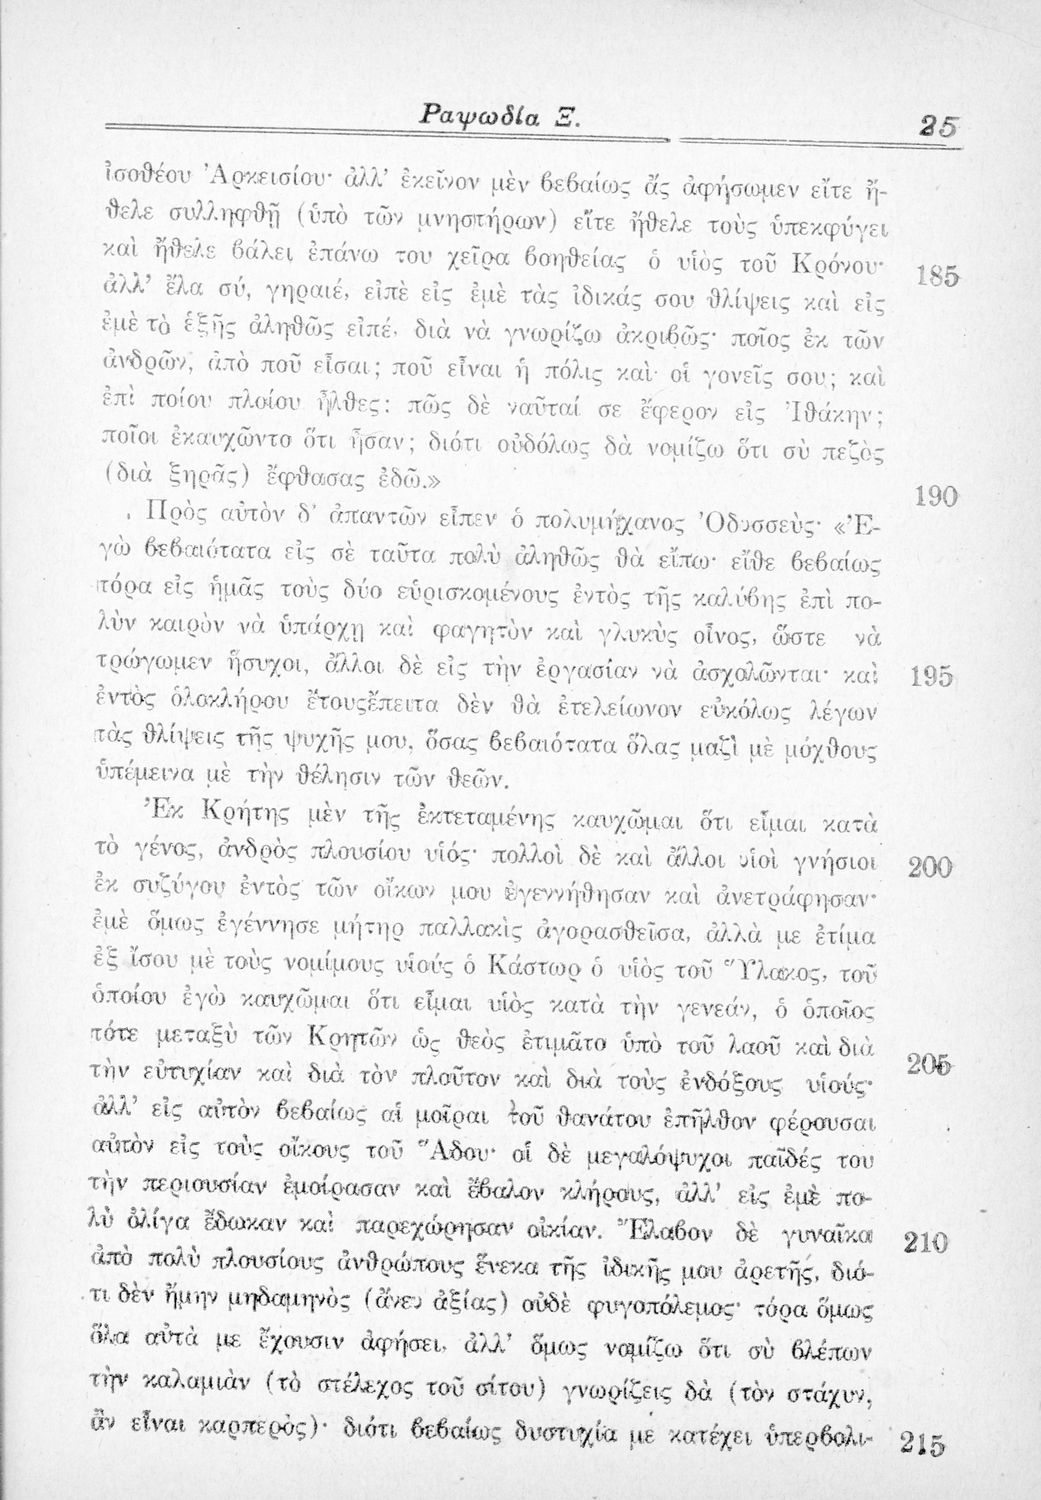 Ραψωδία Ξ. 25
ἰσοθέου Ἀρκεισίου· ἀλλ’ ἐκεῖνον μὲν βεβαίως ἄς ἀφήσωμεν εἴτε ἤ-
θελε συλληφθῇ (ὑπὸ τῶν μνηστήρων) εἴτε ἤθελε τοὺς ὑπεκφύγει
καὶ ἤθελε βάλει ἐπάνω του χεῖρα βοηθείας ὁ υἱὸς τοῦ Κρόνου· 185
ἀλλ’ ἔλα σύ, γηραιέ, εἰπὲ εἰς ἐμὲ τὰς ἰδικάς σου θλίψεις καὶ εἰς
ἐμὲ τὸ ἑξῆς ἀληθῶς εἰπέ, διὰ νὰ γνωρίζω ἀκριβῶς· ποῖος ἐκ τῶν
ἀνδρῶν, ἀπὸ ποῦ εἶσαι; ποῦ εἶναι ἡ πόλις καὶ· οἱ γονεῖς σου; καὶ
ἐπὶ ποίου πλοίου ἦλθες; πῶς δὲ ναῦταί σε ἔφερον εἰς Ἰθάκην;
ποῖοι ἐκαυχῶντο ὅτι ἦσαν; διότι οὐδόλως δὰ νομίζω ὅτι σὺ πεζὸς
(διὰ ξηρᾶς) ἔφθασας ἐδῶ.» 190
Πρὸς αὐτὸν δ’ ἀπαντῶν εἶπεν ὁ πολυμήχανος Ὀδυσσεὺς· «Ἐ-
γὼ βεβαιότατα εἰς σὲ ταῦτα πολὺ ἀληθῶς θὰ εἴπω· εἴθε βεβαίως
τόρα εἰς ἡμᾶς τοὺς δύο εὑρισκομένους ἐντὸς τῆς καλύβης ἐπὶ πο-
λὺν καιρὸν νὰ ὑπάρχῃ καὶ φαγητὸν καὶ γλυκὺς οἶνος, ὥστε νὰ
τρώγωμεν ἥσυχοι, ἄλλοι δὲ εἰς τὴν ἐργασίαν νὰ ἀσχολῶνται· καὶ 195
ἐντὸς ὁλοκλήρου ἔτουςἔπειτα δὲν θὰ ἐτελείωνον εὐκόλως λέγων
τὰς θλίψεις τῆς ψυχῆς μου, ὅσας βεβαιότατα ὅλας μαζὶ μὲ μόχθους
ὑπέμεινα μὲ τὴν θέλησιν τῶν θεῶν.
Ἐκ Κρήτης μὲν τῆς ἐκτεταμένης καυχῶμαι ὅτι εἶμαι κατὰ
τὸ γένος, ἀνδρὸς πλουσίου υἱός· πολλοὶ δὲ καὶ ἄλλοι υἱοὶ γνήσιοι 200
ἐκ συζύγου ἐντὸς τῶν οἴκων μου ἐγεννήθησαν καὶ ἀνετράφησαν·
ἐμὲ ὅμως ἐγέννησε μήτηρ παλλακὶς ἀγορασθεῖσα, ἀλλὰ με ἐτίμα
ἐξ ἴσου μὲ τοὺς νομίμους υἱούς ὁ Κάστωρ ὁ υἱὸς τοῦ Ὕλακος, τοῦ
ὁποίου ἐγὼ καυχῶμαι ὅτι εἶμαι υἱὸς κατὰ τὴν γενεάν, ὁ ὁποῖος
τότε μεταξὺ τῶν Κρητῶν ὡς θεὸς ἐτιμᾶτο ὑπὸ τοῦ λαοῦ καὶ διὰ 205
τὴν εὐτυχίαν καὶ διὰ τὸν πλοῦτον καὶ διὰ τοὺς ἐνδόξους υἱούς·
ἀλλ’ εἰς αὐτὸν βεβαίως αἱ μοῖραι τοῦ θανάτου ἐπῆλθον φέρουσαι
αὐτὸν εἰς τοὺς οἴκους τοῦ Ἅδου· οἱ δὲ μεγαλόψυχοι παῖδές του
τὴν περιουσίαν ἐμοίρασαν καὶ ἔβαλον κλήρους, ἀλλ’ εἰς ἐμὲ πο-
λὺ ὀλίγα ἔδωκαν καὶ παρεχώρησαν οἰκίαν. Ἔλαβον δὲ γυναῖκα 210
ἀπὸ πολὺ πλουσίους ἀνθρώπους ἕνεκα τῆς ἰδικῆς μου ἀρετῆς, διό-
τι δὲν ἤμην μηδαμηνὸς (ἄνευ ἀξίας) οὐδὲ φυγοπόλεμος· τόρα ὅμως
ὅλα αὐτὰ με ἔχουσιν ἀφήσει, ἀλλ’ ὅμως νομίζω ὅτι σὺ βλέπων
τὴν καλαμιὰν (τὸ στέλεχος τοῦ σίτου) γνωρίζεις δὰ (τὸν στάχυν,
ἂν εἶναι καρπερὸς)· διότι βεβαίως δυστυχία με κατέχει ὑπερβολι- 215